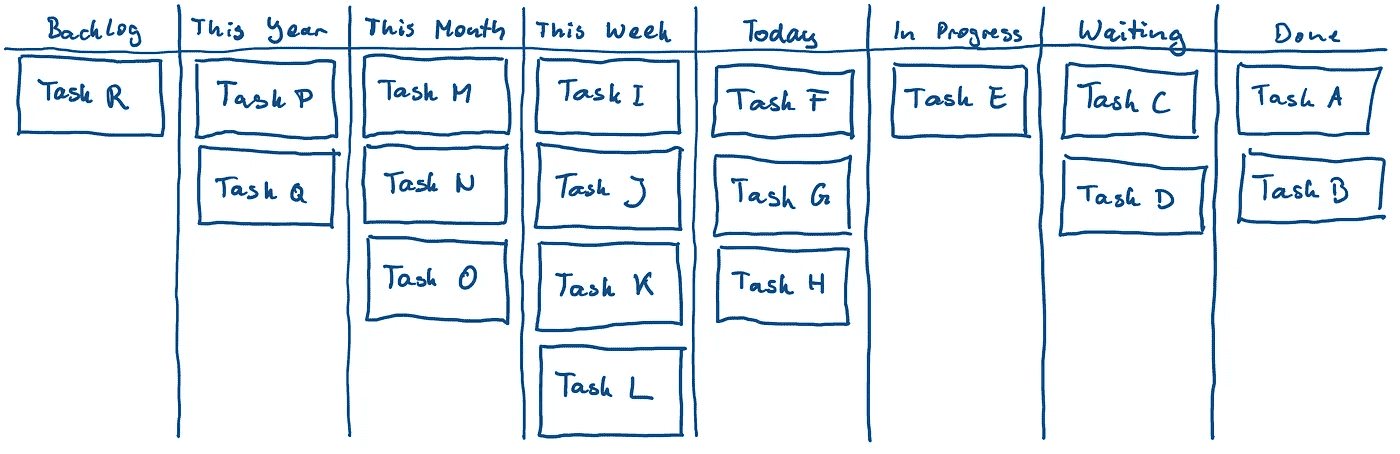 Backlog This Year This Month This Week Today In Progress Waiting Done
Task R Task P Task M Task I Task F Task E Task C Task A
Task Q Task N Task J Task G Task D Task B
Task O Task K Task H
Task L